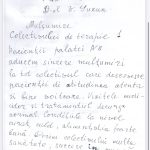 Mulțumire
Colectivului de terapie 1
Pacientul palatei N8
aducem sincere mulțumiri
la tot colectivul care deservește
pacientul de atitudinea atentă
și bine voitoare. Vizitele medi-
cilor și tratamentul decurge
normal. Condițiile la nivel
avem cald, alimentația foarte
bună. Dorim colectivului multă
sănătate, succese în